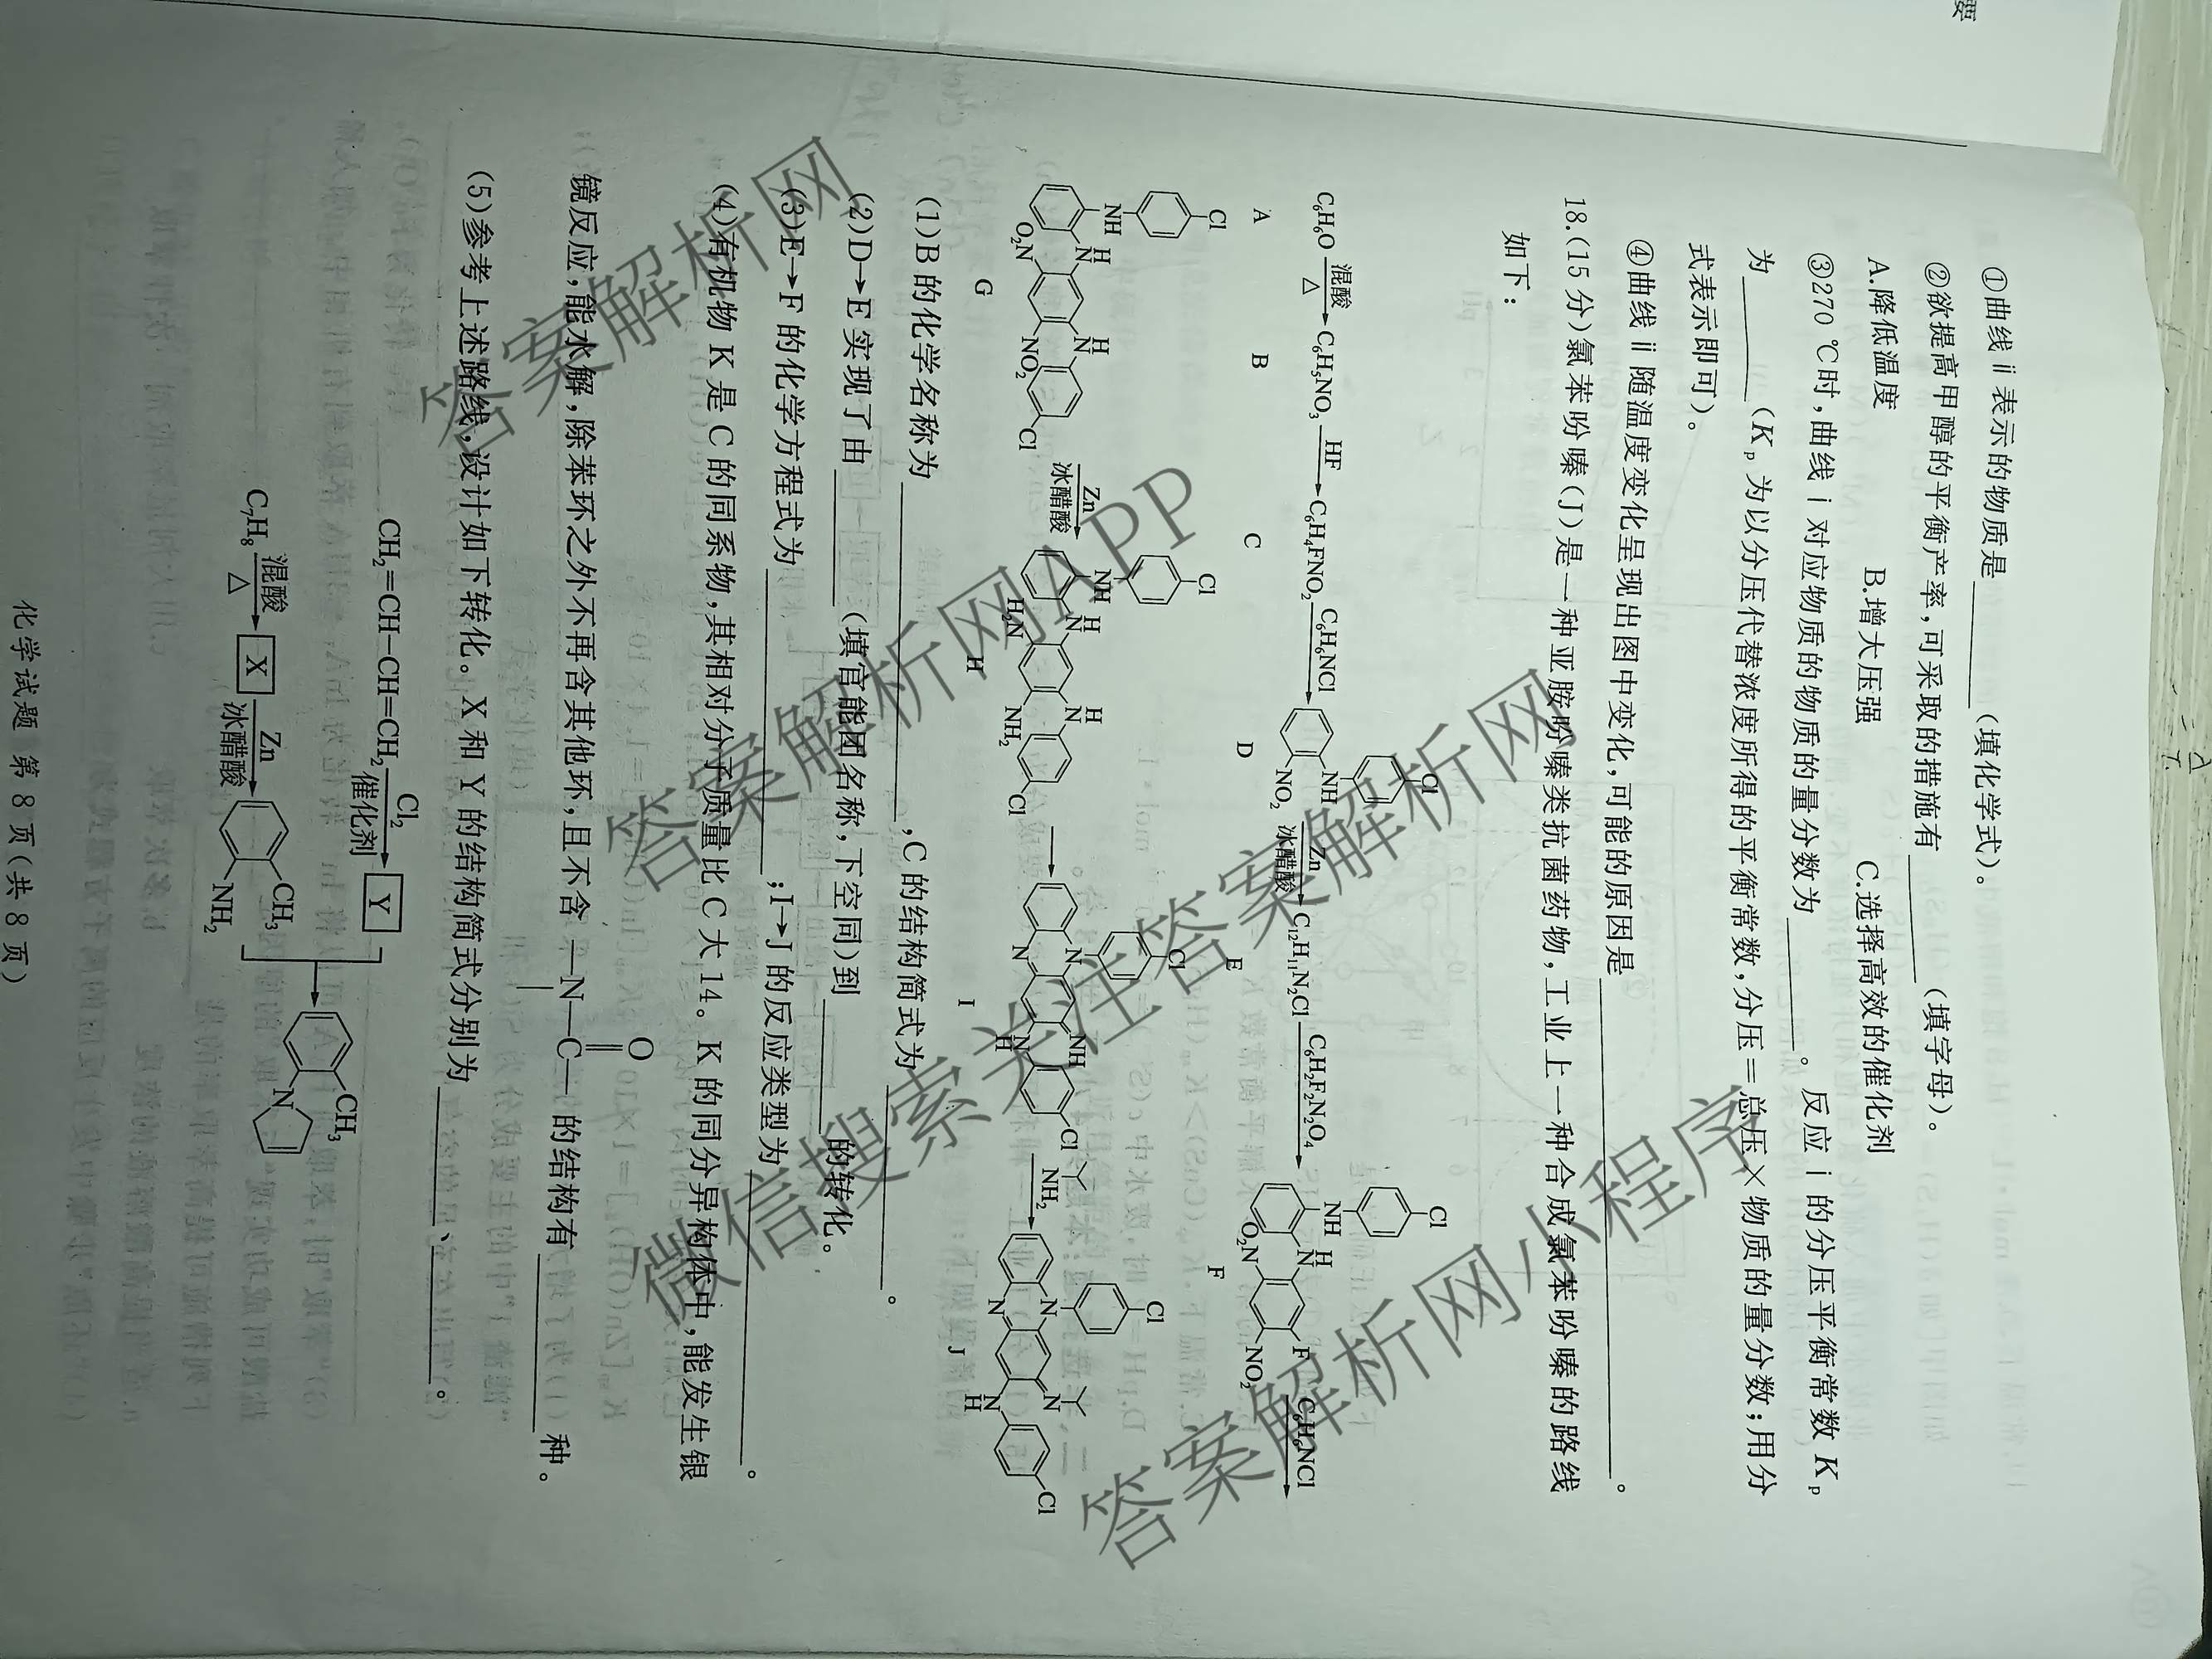 要
①曲线ⅱ表示的物质是________(填化学式)。
②欲提高甲醇的平衡产率,可采取的措施有________(填字母)。
A.降低温度 B.增大压强 C.选择高效的催化剂
③270 ℃时,曲线ⅰ对应物质的物质的量分数为________。反应ⅰ的分压平衡常数 Kp
为________(Kp 为以分压代替浓度所得的平衡常数,分压=总压×物质的量分数;用分
式表示即可)。
④曲线ⅱ随温度变化呈现出图中变化,可能的原因是________。
18.(15分)氯苯吩嗪(J)是一种亚胺吩嗪类抗菌药物,工业上一种合成氯苯吩嗪的路线
如下:
C₆H₆O 混酸 △ C₆H₅NO₃ HF C₆H₄FNO₂ C₆H₆NCl Cl NH NO₂ Zn 冰醋酸 C₁₂H₁₁N₂Cl C₆H₂F₂N₂O₄ Cl NH H N O₂N F NO₂ C₆H₆NCl
A B C D E F
Cl NH H N O₂N H N NO₂ Cl Zn 冰醋酸 Cl NH H N H₂N H N NH₂ Cl Cl N N NH N H Cl NH₂ Cl N N N N H Cl
G H I J
(1)B 的化学名称为________,C 的结构简式为________。
(2)D→E 实现了由________(填官能团名称,下空同)到________的转化。
(3)E→F 的化学方程式为________;I→J 的反应类型为________。
(4)有机物 K 是 C 的同系物,其相对分子质量比 C 大 14。K 的同分异构体中,能发生银
镜反应,能水解,除苯环之外不再含其他环,且不含 —N—C— 的结构有________种。
O
(5)参考上述路线,设计如下转化。X 和 Y 的结构简式分别为________、________。
CH₂=CH—CH=CH₂ Cl₂ 催化剂 Y
C₇H₈ 混酸 △ X Zn 冰醋酸 CH₃ NH₂ CH₃ N
化学试题 第 8 页(共 8 页)
答案解析网
答案解析网APP
答案解析网
微信搜索关注答案解析网小程序
答案解析网